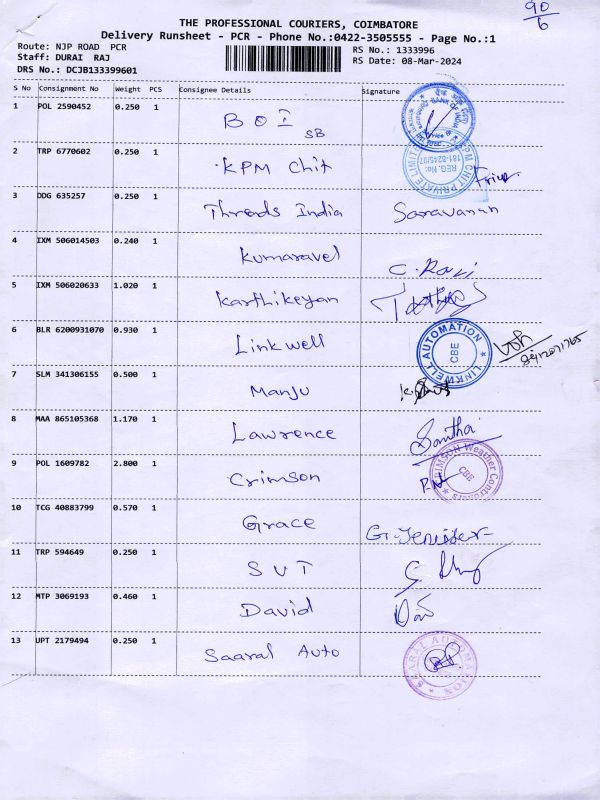 90
6
THE PROFESSIONAL COURIERS, COIMBATORE
Delivery Runsheet - PCR - Phone No.:0422-3505555 - Page No.:1
Route: NJP ROAD PCR
Staff: DURAI RAJ
DRS No.: DCJB133399601
RS No.: 1333996
RS Date: 08-Mar-2024
S No Consignment No Weight PCS Consignee Details Signature
1 POL 2590452 0.250 1 BOI SB
BANK OF INDIA
2 TRP 6770602 0.250 1 KPM Chit
KPM CHIT PRIVATE LIMITED REG.No: 181-8245/97
3 DDG 635257 0.250 1 Threads India Saravanan
4 IXM 506014503 0.240 1 Kumaravel C. Ravi
5 IXM 506020633 1.020 1 Karthikeyan
6 BLR 6200931070 0.930 1 Linkwell
LINKWELL AUTOMATION CBE
7 SLM 341306155 0.500 1 Manju
8 MAA 865105368 1.170 1 Lawrence Santha
9 POL 1609782 2.800 1 Crimson
CRIMSON Weather Contracts CBE
10 TCG 40883799 0.570 1 Grace G. Jenifer
11 TRP 594649 0.250 1 SVT
12 MTP 3069193 0.460 1 David
13 UPT 2179494 0.250 1 Saaral Auto
SAARAL AUTOMATION